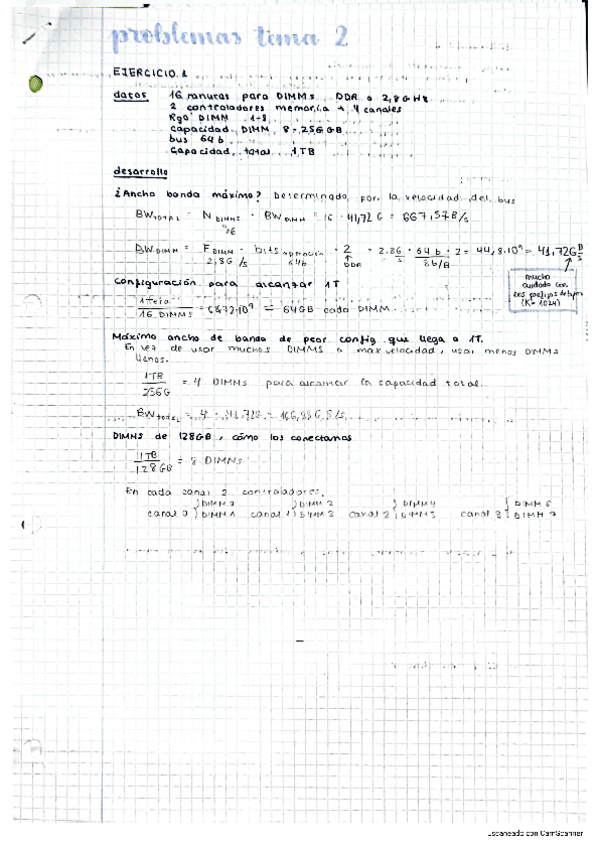 problemas tema 2
EJERCICIO 1
datos 16 ranuras para DIMMs, DDR a 2,8 GHz
2 controladores memoria → 4 canales
Rgo DIMM 1-8
capacidad DIMM 8-256 GB
bus 64 b
capacidad total 1TB
desarrollo
¿Ancho banda máximo? Determinado por la velocidad del bus
BW TOTAL = N DIMMs · BW DIMM = 16 · 41,72 G = 667,57 B/s
16
BW DIMM = F DIMM · bits operación · 2 = 2.8G/s · 64 b/8b/B · 2 = 44,8.10⁹ = 41,72 G B/s
2,8G/s 64b ↑ DDR
mucho cuidado con los prefijos de bytes (K=1024)
Configuración para alcanzar 1T
16 DIMMs = 64GB cada DIMM
Máximo ancho de banda de peor config que llega a 1T.
En vez de usar muchos DIMMs a max velocidad, usar menos DIMMs
llenos.
1TB/256G = 4 DIMMs para alcanzar la capacidad total.
BW total = 4 · 41,72G = G B/s
DIMMs de 128GB, cómo los conectamos
1TB/128GB = 8 DIMMs
En cada canal 2 controladores.
canal 0 canal 1 canal 2 canal 3
Escaneado con CamScanner